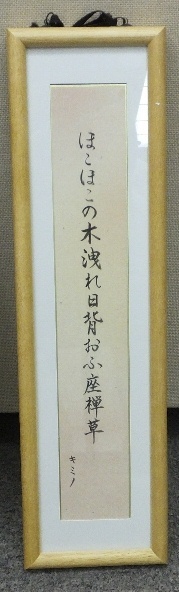 ほこほこの木洩れ日背おふ座禅草
キミノ